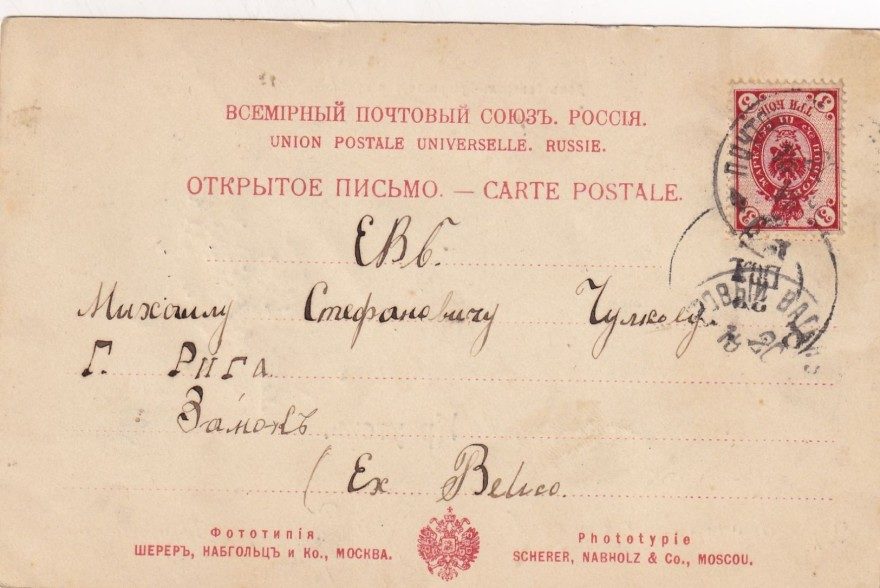 ВСЕМІРНЫЙ ПОЧТОВЫЙ СОЮЗЪ. РОССІЯ.
UNION POSTALE UNIVERSELLE. RUSSIE.
ОТКРЫТОЕ ПИСЬМО. — CARTE POSTALE.
3 ТРИ КОП. 3
3 3
ПОЧТОВЫЙ ВАГОНЪ
ЕВб.
Михаилу Стефановичу Чулкову.
Г. Рига
Замокъ
(Ex
Фототипія
ШЕРЕРЪ, НАБГОЛЬЦЪ и Ко., МОСКВА.
Phototypie
SCHERER, NABHOLZ & Co., MOSCOU.